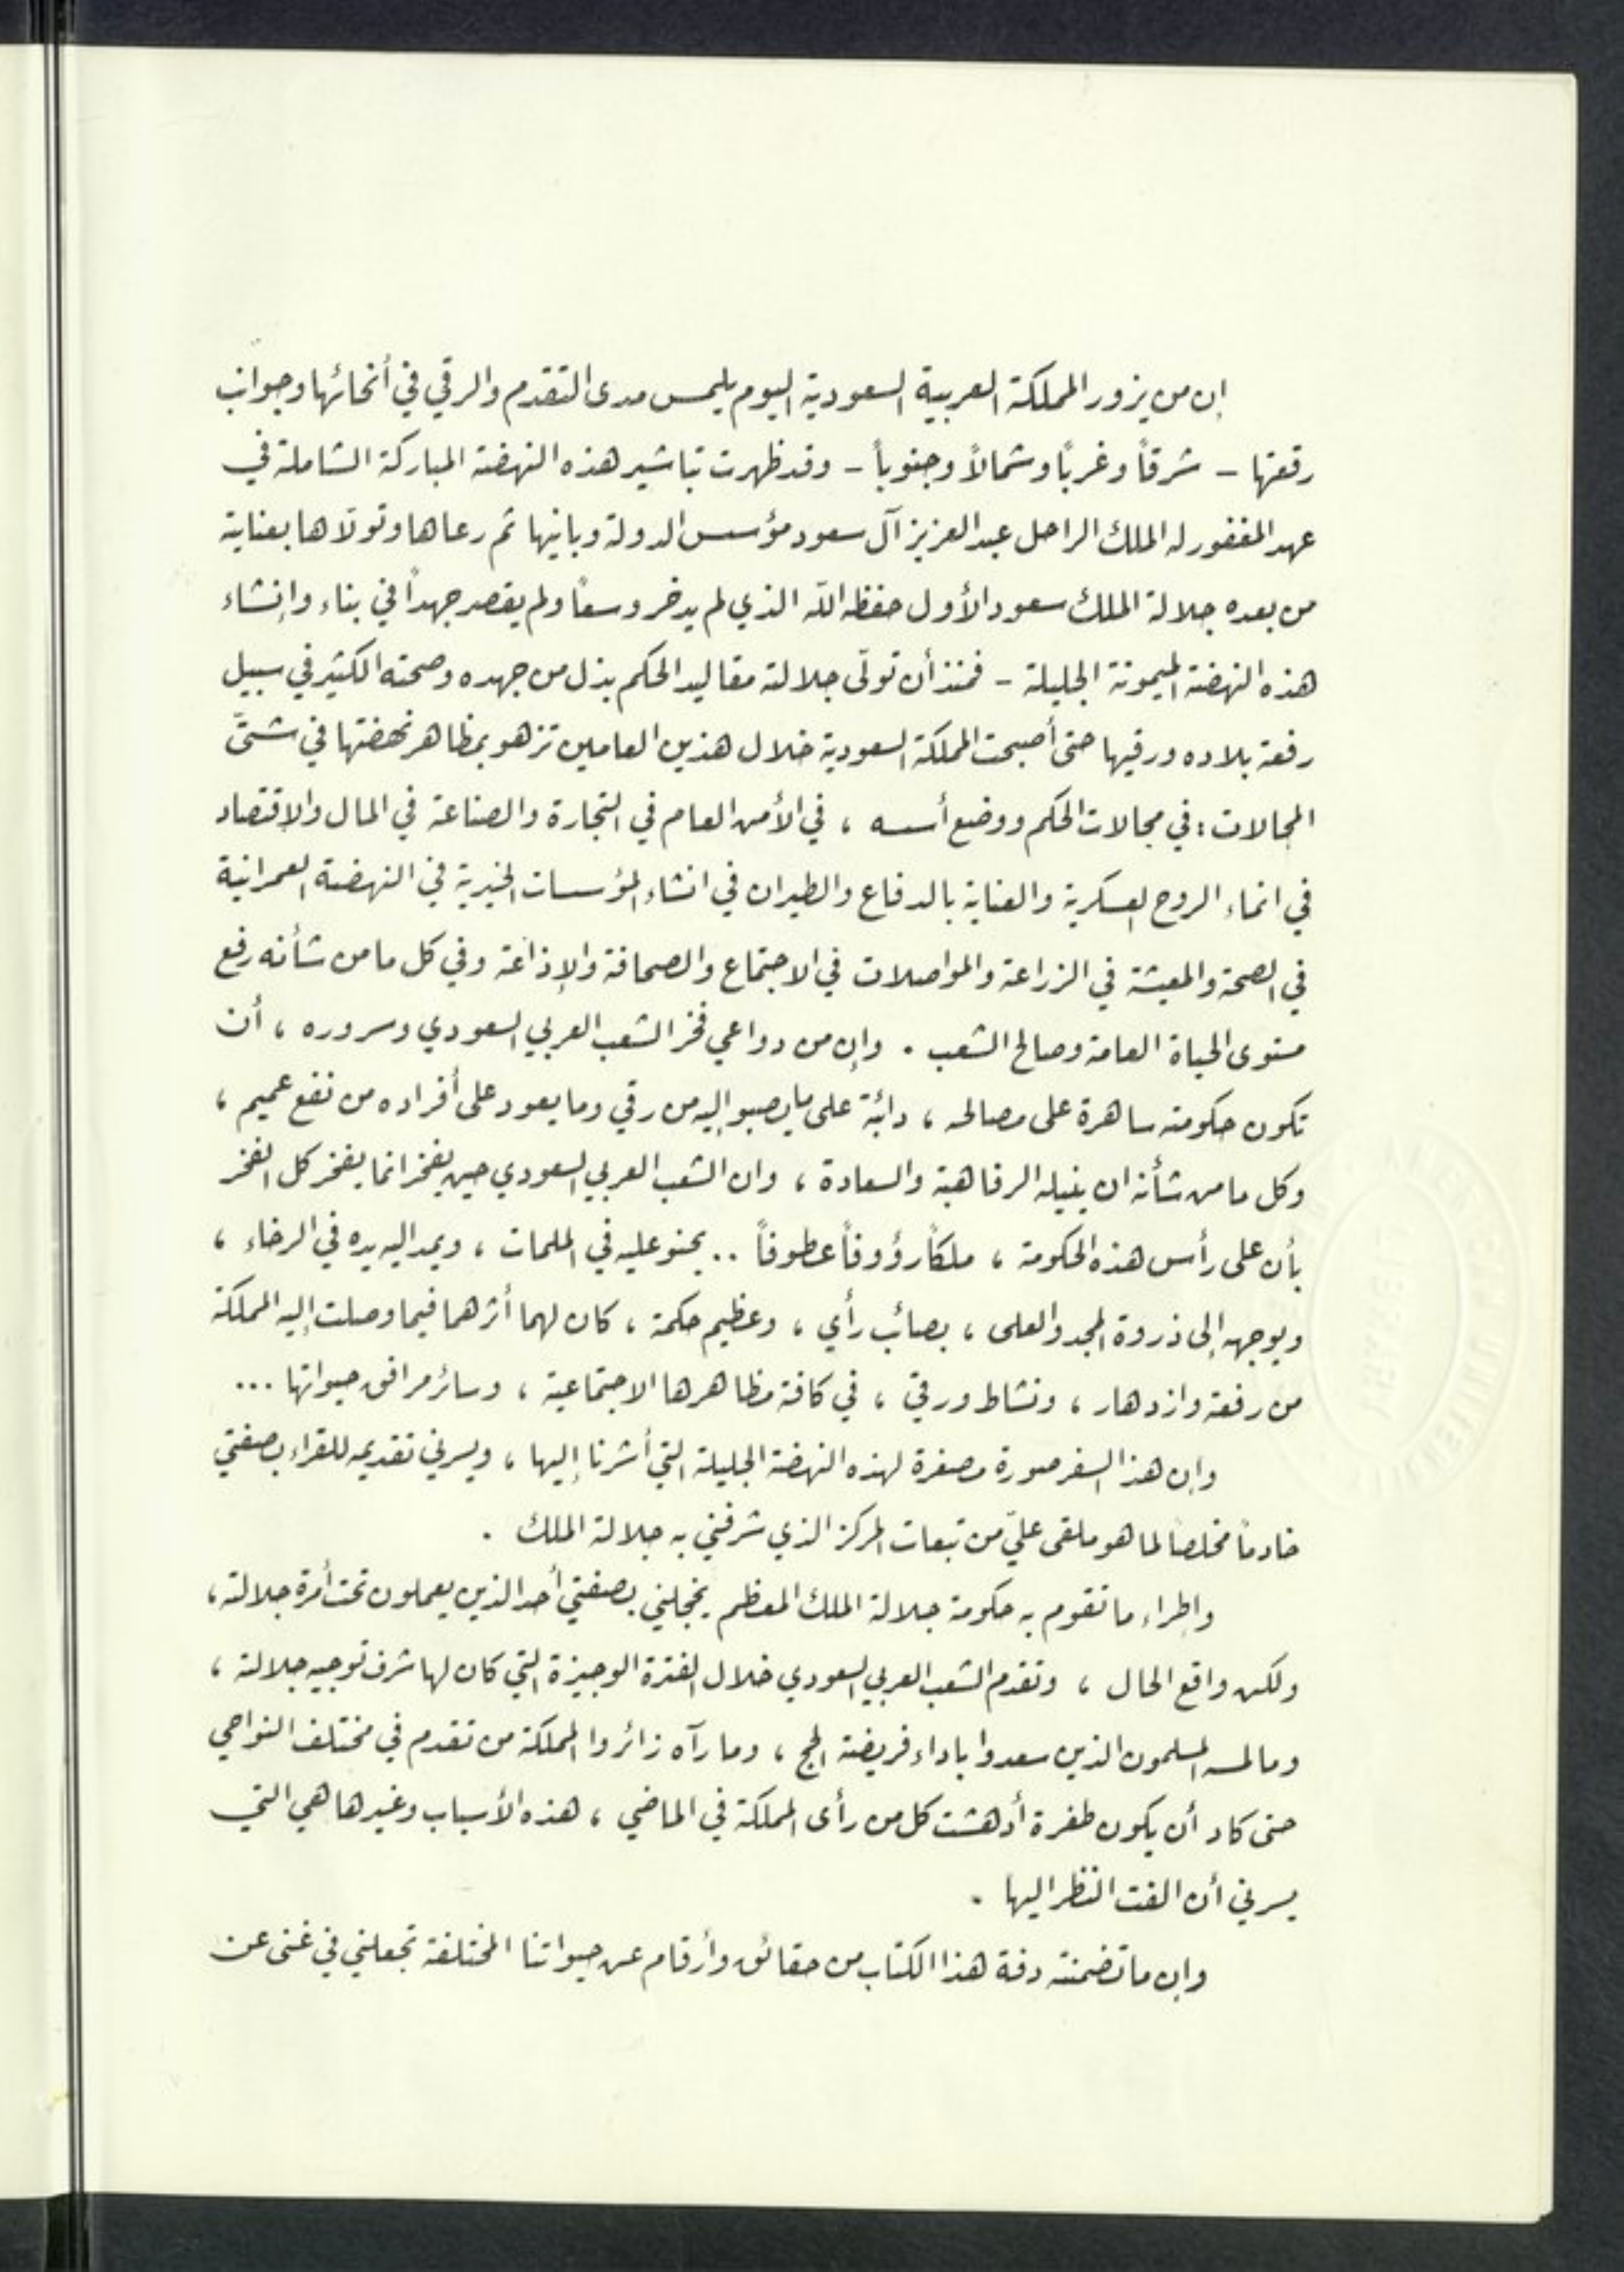 إن من يزور المملكة العربية السعودية اليوم يلمس مدى التقدم والرقي في أنحائها وجوانب
رقعتها – شرقاً وغرباً وشمالاً وجنوباً – وقد ظهرت تباشير هذه النهضة المباركة الشاملة في
عهد المغفور له الملك الراحل عبد العزيز آل سعود مؤسس الدولة وبانيها ثم رعاها وتولاها بعناية
من بعده جلالة الملك سعود الأول حفظه الله الذي لم يدخر وسعاً ولم يقصر جهداً في بناء وإنشاء
هذه النهضة الميمونة الجليلة – فمنذ أن تولّى جلالته مقاليد الحكم بذل من جهده وصحته الكثير في سبيل
رفعة بلاده ورقيها حتى أصبحت المملكة السعودية خلال هذين العامين تزهو بمظاهر نهضتها في شتّى
المجالات : في مجالات الحكم ووضع أسسه ، في الأمن العام في التجارة والصناعة في المال والإقتصاد
في انماء الروح العسكرية والعناية بالدفاع والطيران في انشاء المؤسسات الخيرية في النهضة العمرانية
في الصحة والمعيشة في الزراعة والمواصلات في الاجتماع والصحافة والإذاعة وفي كل ما من شأنه رفع
مستوى الحياة العامة وصالح الشعب . وإن من دواعي فخر الشعب العربي السعودي وسروره ، أن
تكون حكومته ساهرة على مصالحه ، دائبة على ما يصبو إليه من رقي وما يعود على أفراده من نفع عميم ،
وكل ما من شأنه ان ينيله الرفاهية والسعادة ، وان الشعب العربي السعودي حين يفخر انما يفخر كل الفخر
بأن على رأس هذه الحكومة ، ملكاً رؤوفاً عطوفاً .. يحنو عليه في الملمات ، ويمد اليه يده في الرخاء ،
ويوجهه إلى ذروة المجد والعلى ، بصائب رأي ، وعظيم حكمة ، كان لهما أثرهما فيما وصلت إليه المملكة
من رفعة وازدهار ، ونشاط ورقي ، في كافة مظاهرها الاجتماعية ، وسائر مرافق حيواتها ...
وإن هذا السفر صورة مصغرة لهذه النهضة الجليلة التي أشرنا إليها ، ويسرني تقديمه للقراء بصفتي
خادماً مخلصاً لما هو ملقى عليّ من تبعات المركز الذي شرفني به جلالة الملك .
وإطراء ما تقوم به حكومة جلالة الملك المعظم يخجلني بصفتي أحد الذين يعملون تحت أمرة جلالته ،
ولكن واقع الحال ، وتقدم الشعب العربي السعودي خلال الفترة الوجيزة التي كان لها شرف توجيه جلالته ،
وما لمسه المسلمون الذين سعدوا باداء فريضة الحج ، وما رآه زائروا المملكة من تقدم في مختلف النواحي
حتى كاد أن يكون طفرة أدهشت كل من رأى المملكة في الماضي ، هذه الأسباب وغيرها هي التي
يسرني أن الفت النظر اليها .
وإن ما تضمنته دفة هذا الكتاب من حقائق وأرقام عن حيواتنا المختلفة تجعلني في غنى عن